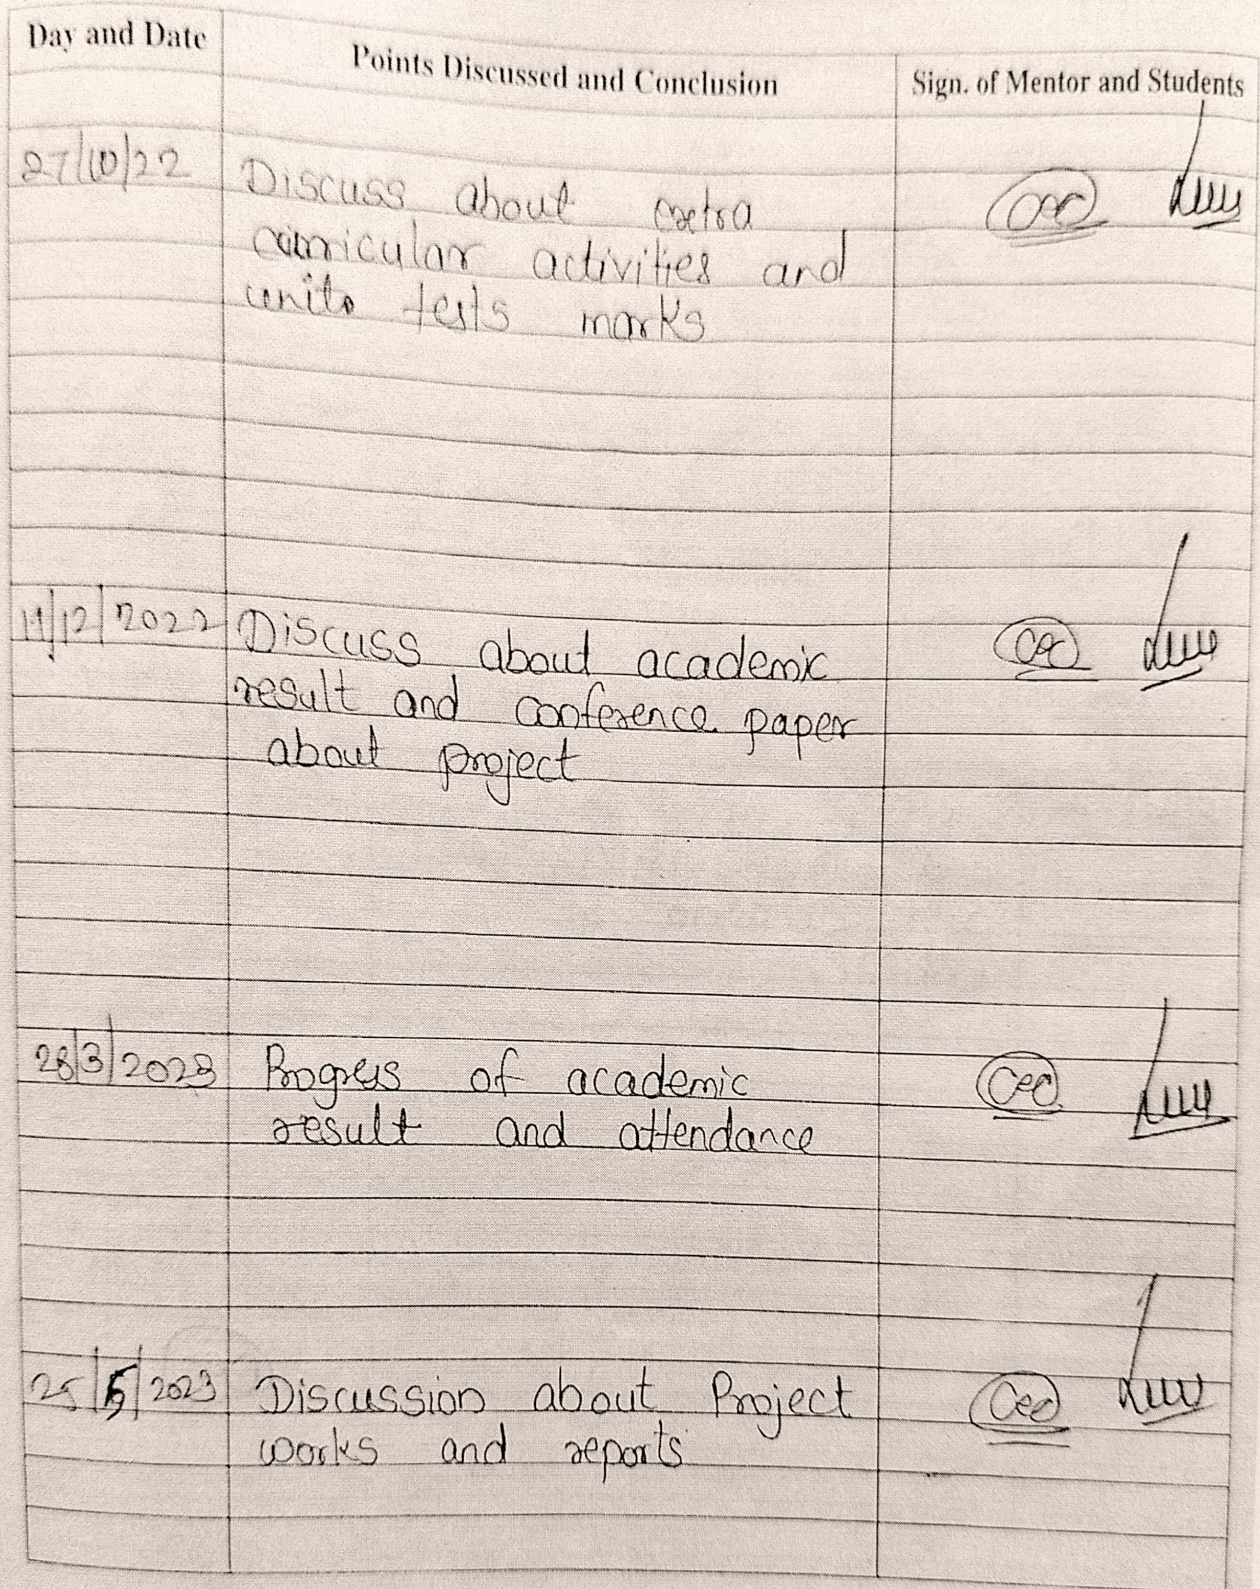 Day and Date Points Discussed and Conclusion Sign. of Mentor and Students
27/10/22 Discuss about extra
curricular activities and
units tests marks
11/12/2022 Discuss about academic
result and conference paper
about project
28/3/2023 Progress of academic
result and attendance
25/5/2023 Discussion about Project
works and reports